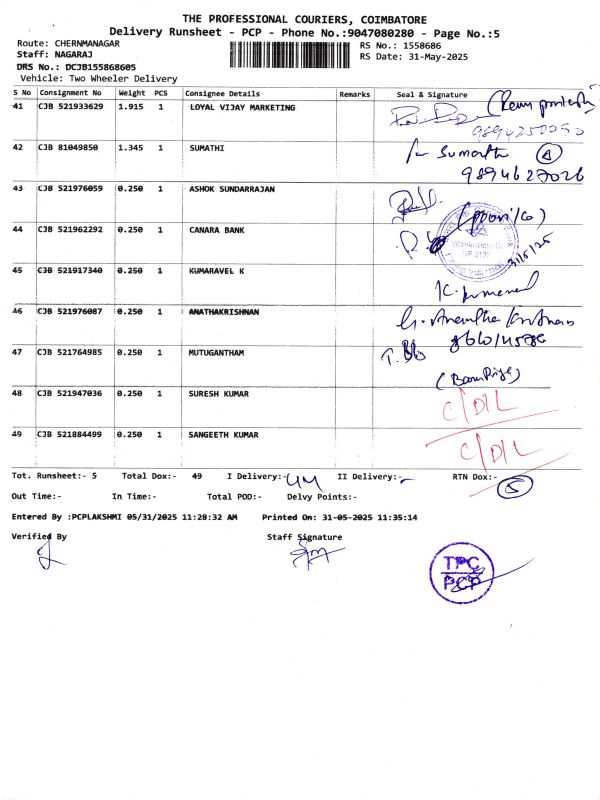 THE PROFESSIONAL COURIERS, COIMBATORE
Delivery Runsheet - PCP - Phone No.:9047080280 - Page No.:5
Route: CHERNMANAGAR RS No.: 1558686
Staff: NAGARAJ RS Date: 31-May-2025
DRS No.: DCJB155868605
Vehicle: Two Wheeler Delivery
S No Consignment No Weight PCS Consignee Details Remarks Seal & Signature
41 CJB 521933629 1.915 1 LOYAL VIJAY MARKETING
42 CJB 81049850 1.345 1 SUMATHI Sumathi 4
9894627026
43 CJB 521976059 0.250 1 ASHOK SUNDARRAJAN
44 CJB 521962292 0.250 1 CANARA BANK
45 CJB 521917340 0.250 1 KUMARAVEL K
46 CJB 521976087 0.250 1 ANATHAKRISHNAN
47 CJB 521764985 0.250 1 MUTUGANTHAM
48 CJB 521947036 0.250 1 SURESH KUMAR C/D/L
49 CJB 521884499 0.250 1 SANGEETH KUMAR C/D/L
Tot. Runsheet:- 5 Total Dox:- 49 I Delivery:- 44 II Delivery:- RTN Dox:- 5
Out Time:- In Time:- Total POD:- Delvy Points:-
Entered By :PCPLAKSHMI 05/31/2025 11:28:32 AM Printed On: 31-05-2025 11:35:14
Verified By Staff Signature
TPC
PCP